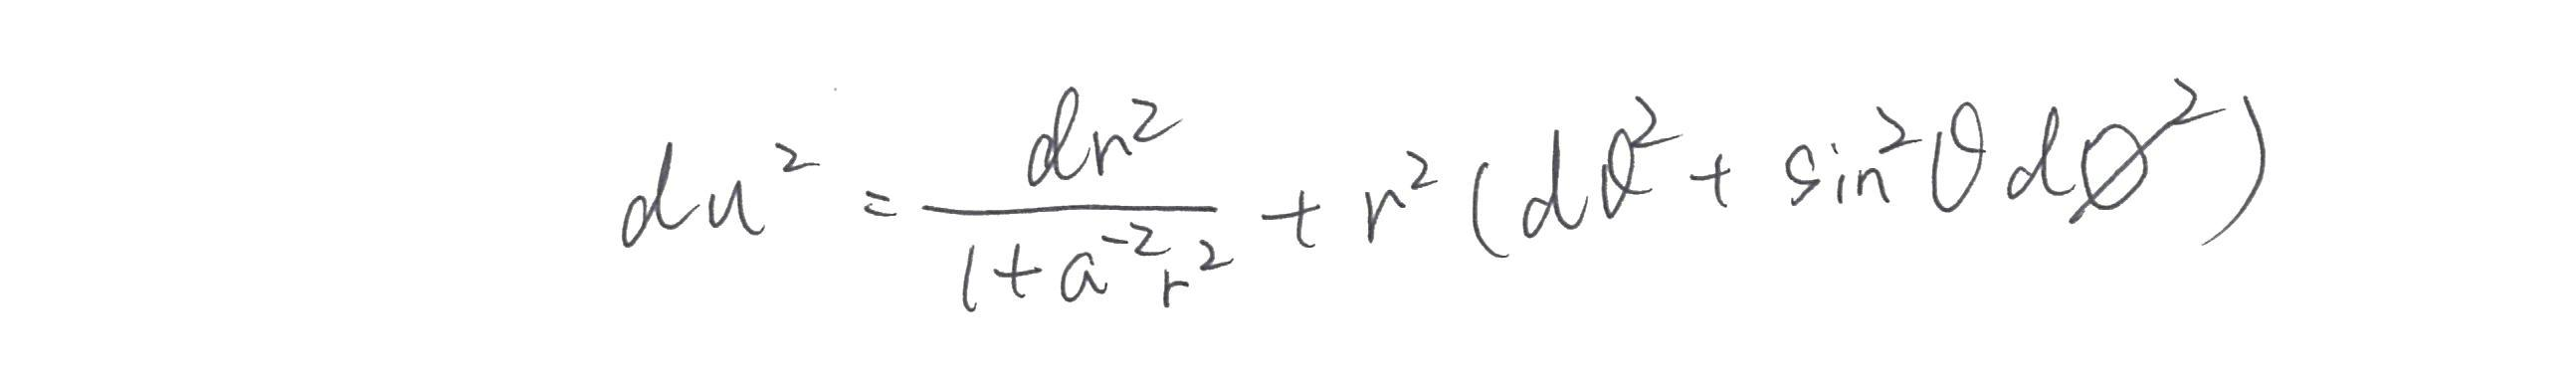 du² = dr² / (1 + a⁻²r²) + r² (dθ² + sin²θ dφ²)